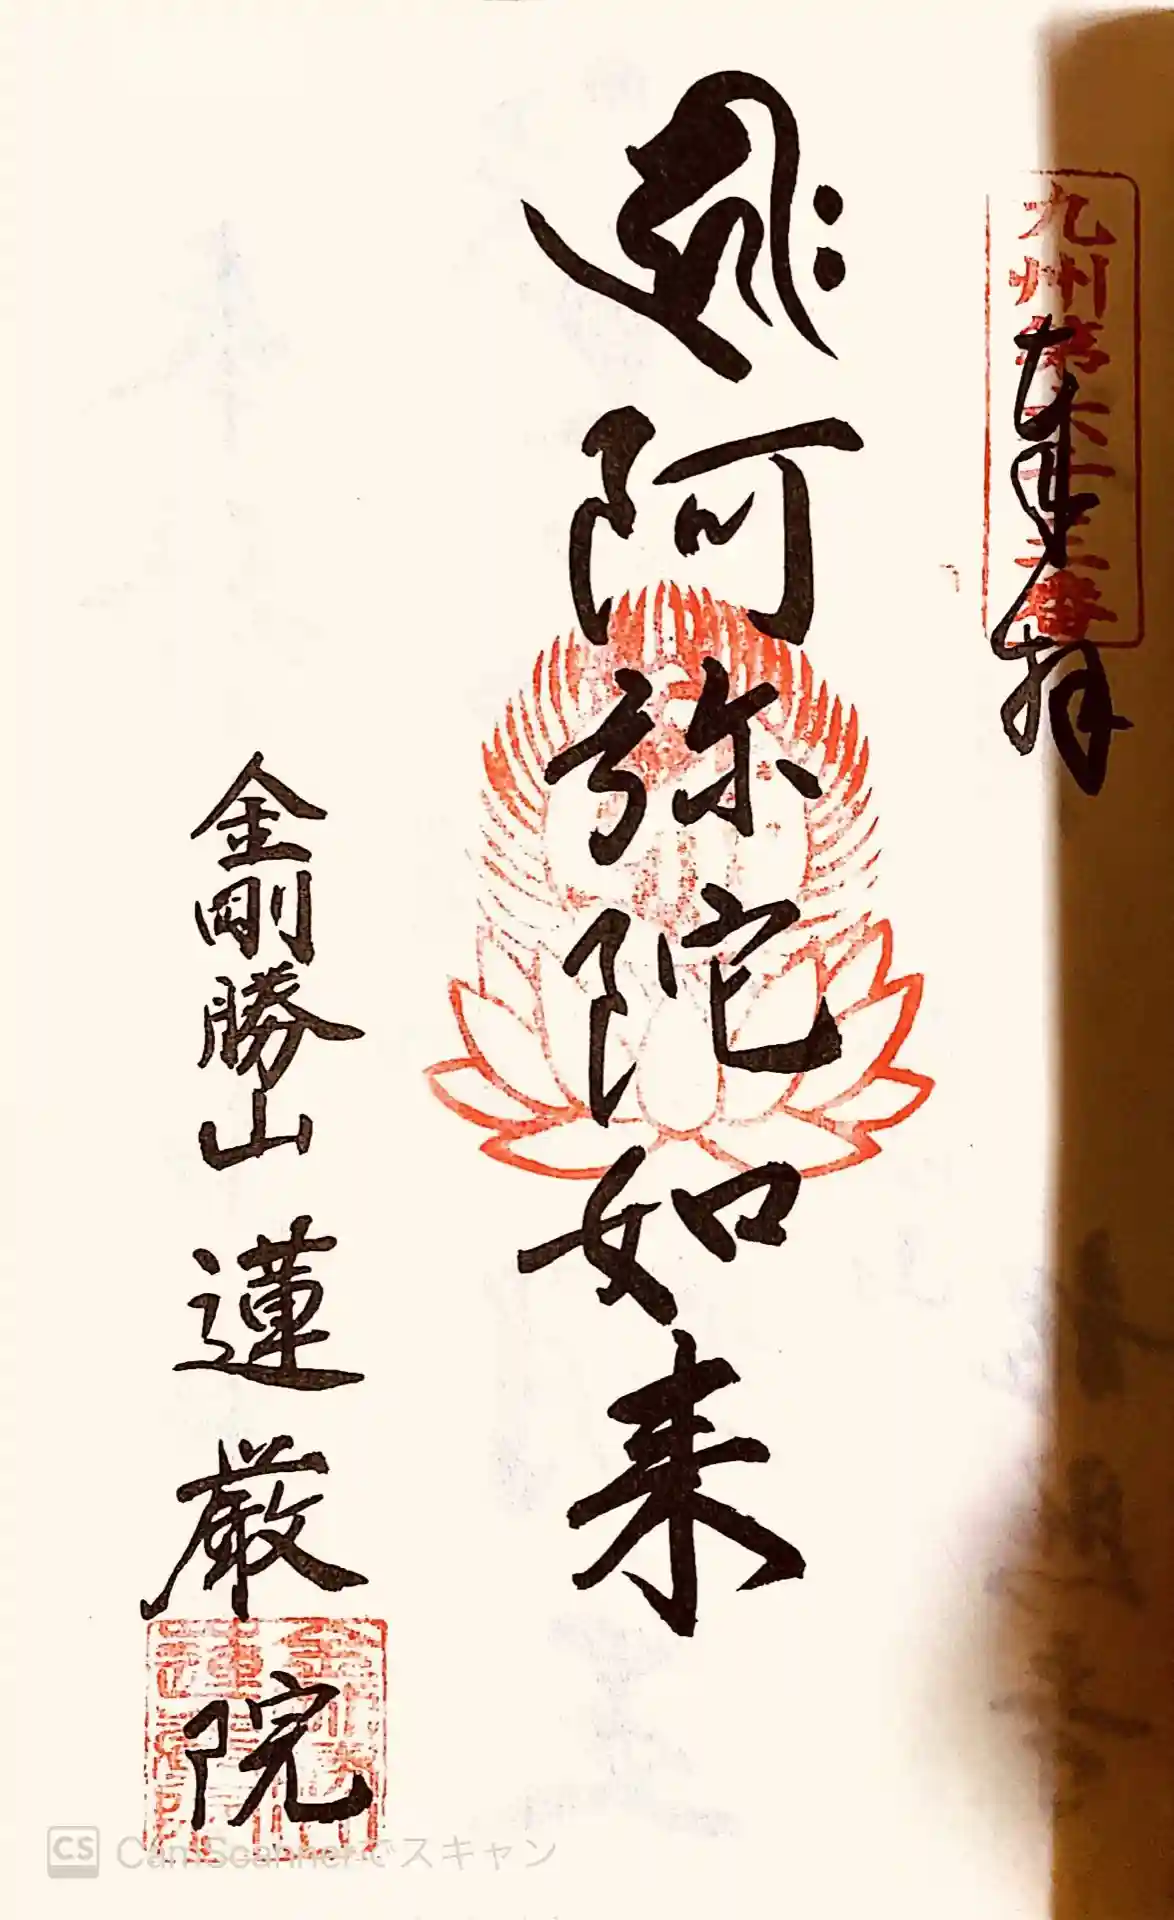 九州第六十三番
奉拝
ह्रीः
阿弥陀如来
金剛勝山 蓮厳院
CS CamScannerでスキャン